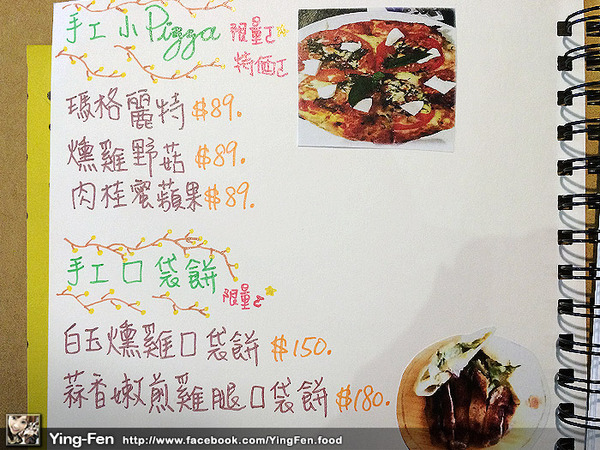 手工小Pizza 限量ㄛ
特価ㄛ
瑪格麗特 $89.
燻雞野菇 $89.
肉桂蜜蘋果 $89.
手工口袋餅 限量ㄛ
白玉燻雞口袋餅 $150.
蒜香嫩煎雞腿口袋餅 $180.
Ying-Fen http://www.facebook.com/YingFen.food